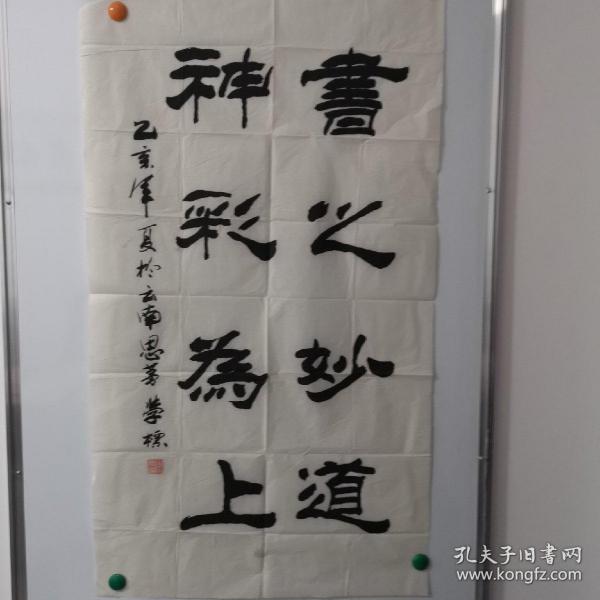 書之妙道
神彩為上
乙亥年夏於云南思茅
孔夫子旧書网
www.kongfz.com